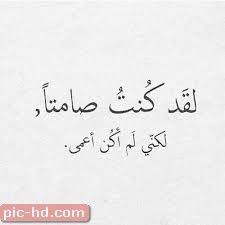 لقَد كُنتُ صامتاً,
لَكنّي لَم أَكُن أعمى.
pic-hd.com